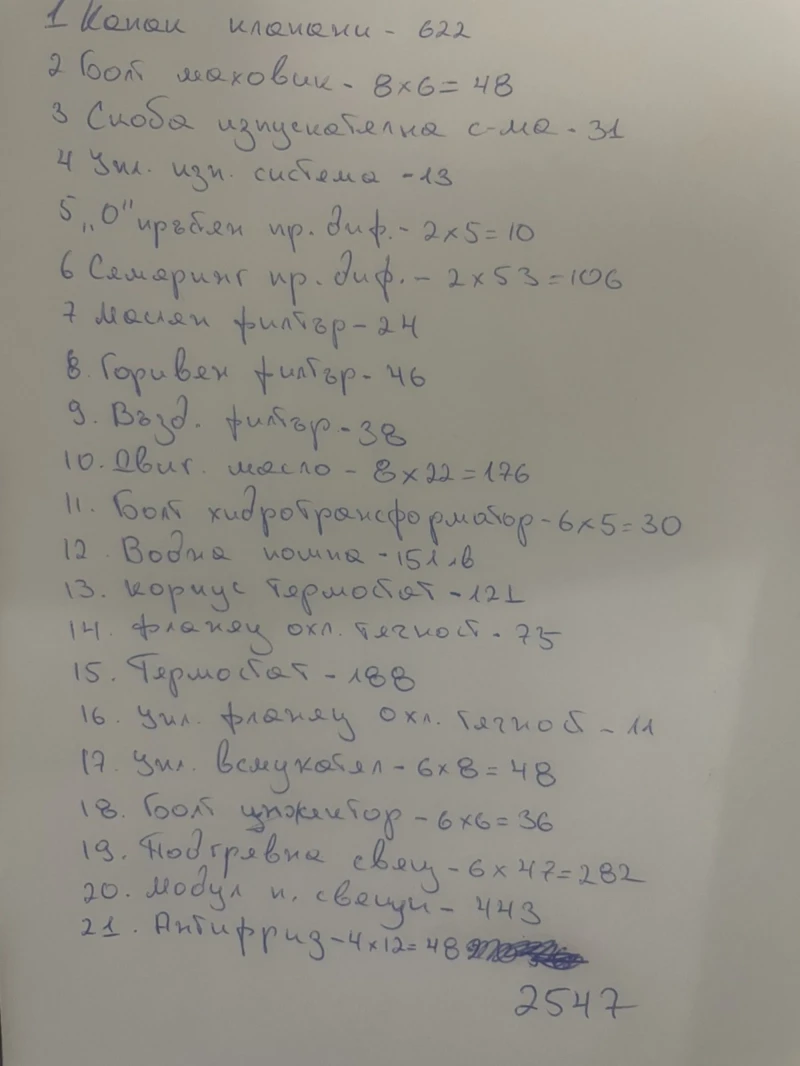 1 Капак клапани - 622
2 Болт маховик - 8x6=48
3 Скоба изпускателна с-ма - 31
4 Упл. изп. система - 13
5 „О" пръстен пр. диф. - 2x5=10
6 Семеринг пр. диф. - 2x53=106
7 Маслен филтър - 24
8. Горивен филтър - 46
9. Възд. филтър - 38
10. Двиг. масло - 8x22=176
11. Болт хидротрансформатор - 6x5=30
12. Водна помпа - 151 лв
13. Корпус термостат - 121
14. Фланец охл. течност - 75
15. Термостат - 188
16. Упл. фланец охл. течност - 11
17. Упл. всмукател - 6x8=48
18. Болт инжектор - 6x6=36
19. Подгревна свещ - 6x47=282
20. Модул п. свещи - 443
21. Антифриз - 4x12=48
2547